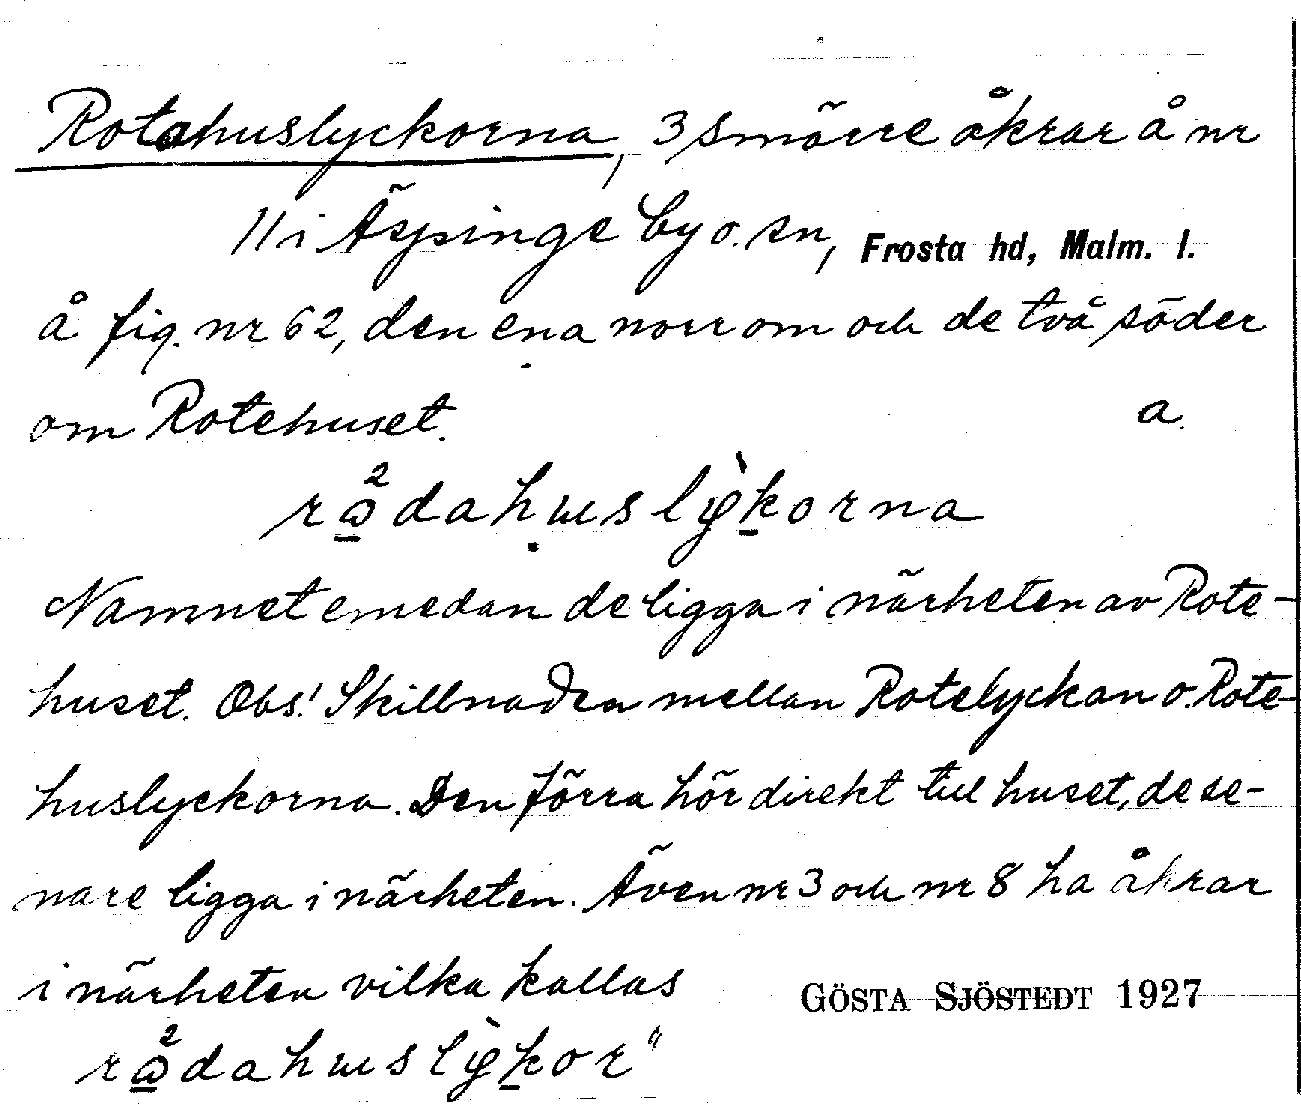 Rotahuslyckorna, 3 smärre åkrar å nr
11 i Äspinge by o. sn, Frosta hd, Malm. l.
å fig. nr 62, den ena norr om och de två söder
om Rotehuset. a.
rω̲̊²dahu̩slỳk̲orna
Namnet emedan de ligga i närheten av Rote-
huset. Obs! Skillnaden mellan Rotelyckan o. Rote-
huslyckorna. Den förra hör direkt till huset, de se-
nare ligga i närheten. Även nr 3 och nr 8 ha åkrar
i närheten vilka kallas
GÖSTA SJÖSTEDT 1927
rω̲̊²dahuslỳk̲or"